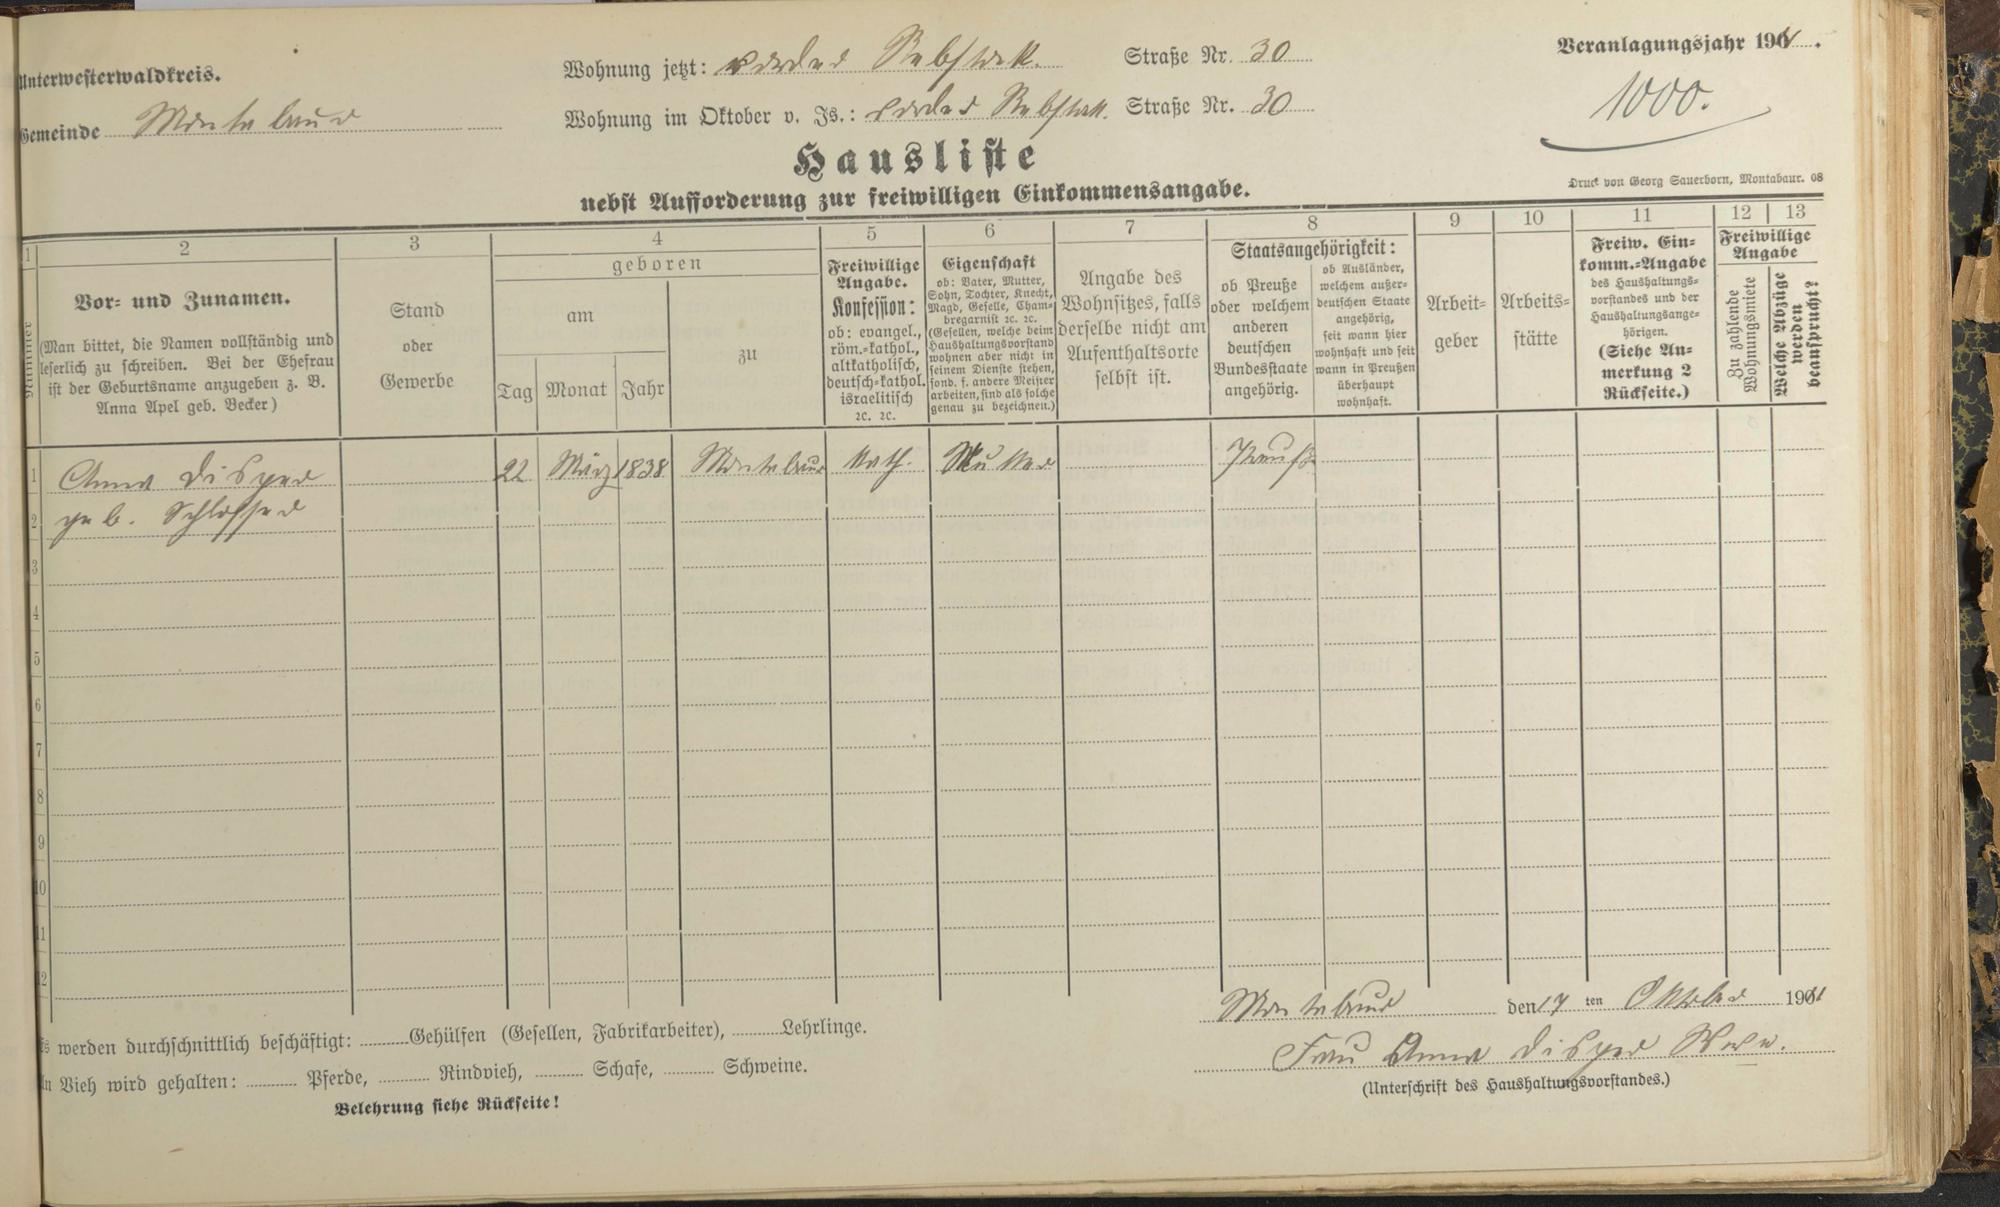 Unterwesterwaldkreis.
Gemeinde Montabaur
Wohnung jetzt: vorder Rebstock. Straße Nr. 30
Wohnung im Oktober v. Js.: vorder Rebstock. Straße Nr. 30
Veranlagungsjahr 190
1000.
Hausliste
nebst Aufforderung zur freiwilligen Einkommensangabe.
Druck von Georg Sauerborn, Montabaur. 08
1
Nummer
2
Vor- und Zunamen.
(Man bittet, die Namen vollständig und
leserlich zu schreiben. Bei der Ehefrau
ist der Geburtsname anzugeben z. B.
Anna Apel geb. Becker)
3
Stand
oder
Gewerbe
4
geboren
am
Tag Monat Jahr
zu
5
Freiwillige
Angabe.
Konfession:
ob: evangel.,
röm.-kathol.,
altkatholisch,
deutsch-kathol.
israelitisch
2c. 2c.
6
Eigenschaft
ob: Vater, Mutter,
Sohn, Tochter, Knecht,
Magd, Geselle, Cham-
bregarnist 2c. 2c.
(Gesellen, welche beim
Haushaltungsvorstand
wohnen aber nicht in
seinem Dienste stehen,
sond. f. andere Meister
arbeiten, sind als solche
genau zu bezeichnen.)
7
Angabe des
Wohnsitzes, falls
derselbe nicht am
Aufenthaltsorte
selbst ist.
8
Staatsangehörigkeit:
ob Preuße
oder welchem
anderen
deutschen
Bundesstaate
angehörig.
ob Ausländer,
welchem außer-
deutschen Staate
angehörig,
seit wann hier
wohnhaft und seit
wann in Preußen
überhaupt
wohnhaft.
9
Arbeit-
geber
10
Arbeits-
stätte
11
Freiw. Ein-
komm.-Angabe
des Haushaltungs-
vorstandes und der
Haushaltungsange-
hörigen.
(Siehe An-
merkung 2
Rückseite.)
12 13
Freiwillige
Angabe
Zu zahlende
Wohnungsmiete
Welche Abzüge
werden
beansprucht?
1 Anna Disper 22 März 1838 Montabaur kath. Mutter Preuße
2 geb. Schlosser
3
4
5
6
7
8
9
10
11
12
Es werden durchschnittlich beschäftigt: Gehülfen (Gesellen, Fabrikarbeiter), Lehrlinge.
An Vieh wird gehalten: Pferde, Rindvieh, Schafe, Schweine.
Belehrung siehe Rückseite!
Montabaur den 17 ten Oktober 190
Frau Anna Disper Wwe.
(Unterschrift des Haushaltungsvorstandes.)